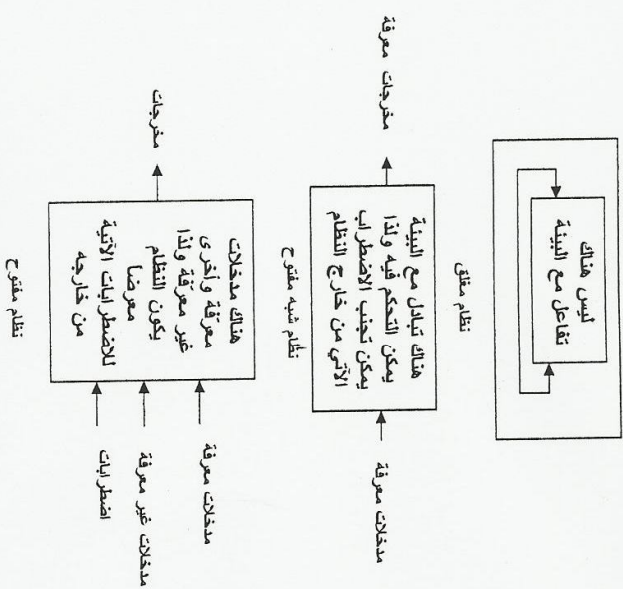 ليس هناك
تفاعل مع البيئة
نظام مغلق
مدخلات معرفة
هناك تبادل مع البيئة
يمكن التحكم فيه ولذا
يمكن تجنب الاضطراب
الآتي من خارج النظام
مخرجات معرفة
نظام شبه مفتوح
مدخلات معرفة
مدخلات غير معرفة
اضطرابات
هناك مدخلات
معرفة وأخرى
غير معرفة ولذا
يكون النظام
معرضا
للاضطرابات الآتية
من خارجه
مخرجات
نظام مفتوح